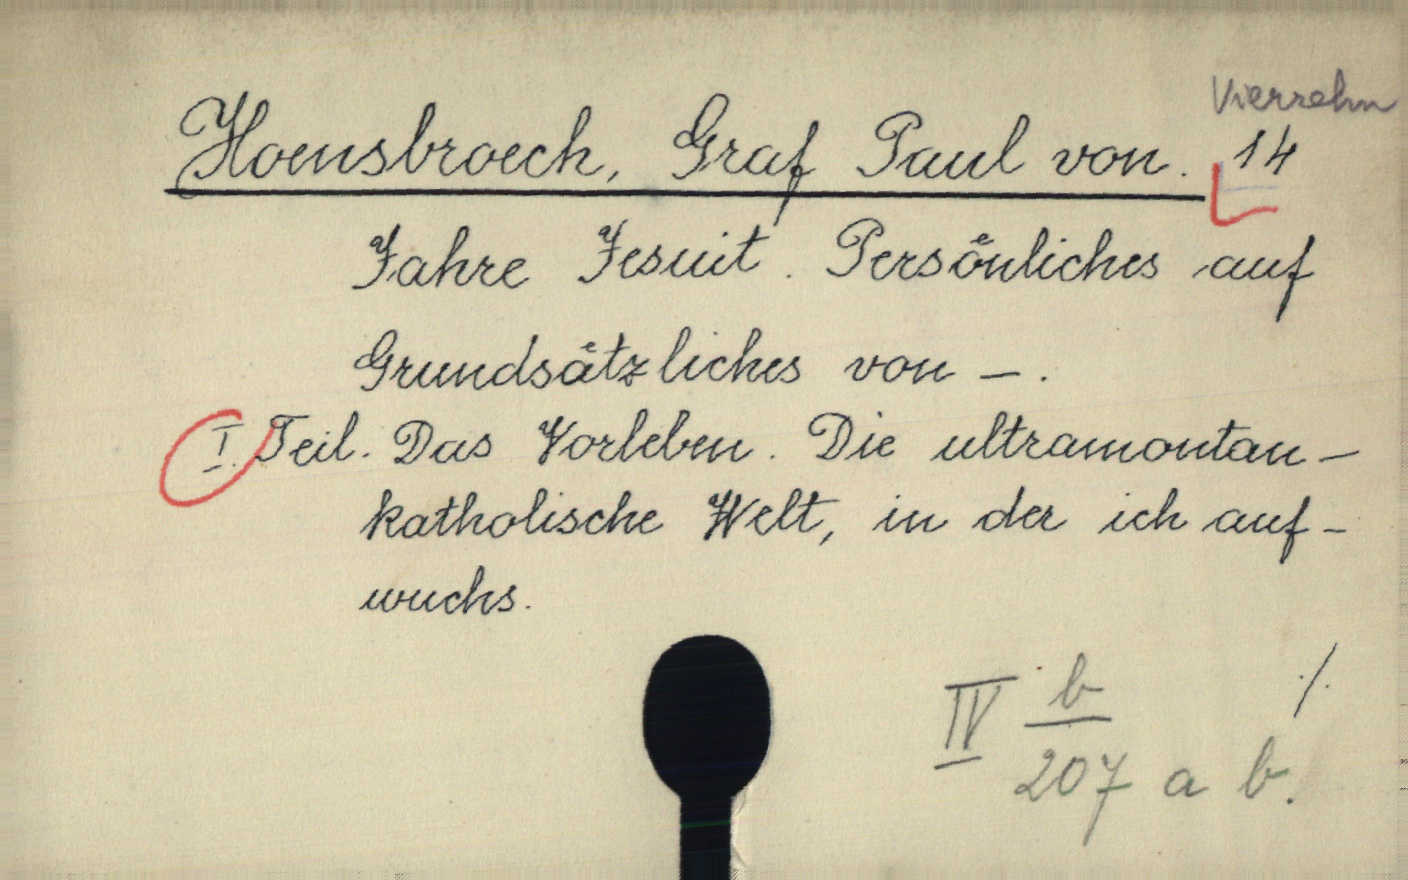 Vierzehn
Hoensbroech, Graf Paul von. 14
Jahre Jesuit. Persönliches auf
Grundsätzliches von -.
I. Teil. Das Vorleben. Die ultramontan-
katholische Welt, in der ich auf-
wuchs.
IV b ./.
207 a b.